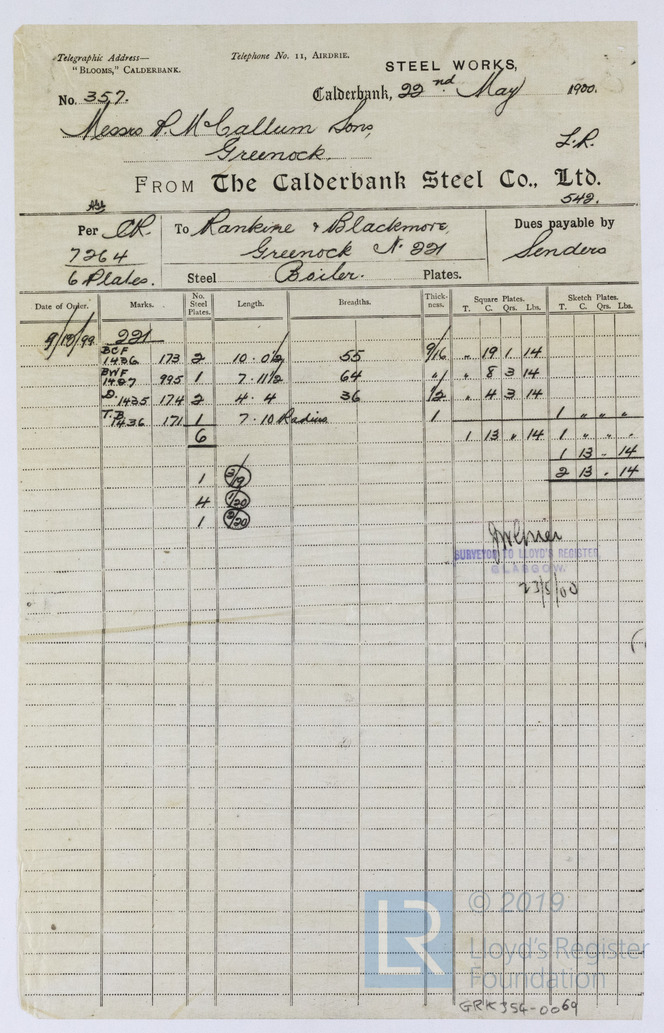 Telegraphic Address— Telephone No. 11, AIRDRIE.
"BLOOMS," CALDERBANK. STEEL WORKS,
No. 357. Calderbank, 22nd May 1900.
Messrs P. McCallum Sons,
Greenock. L.R.
FROM The Calderbank Steel Co., Ltd.
542.
Per CR. To Rankine & Blackmore, Dues payable by
7264 Greenock No. 221 Senders
6 Plates. Steel Boiler. Plates.
Date of Order. Marks. No. Steel Plates. Length. Breadths. Thickness. Square Plates. Sketch Plates.
T. C. Qrs. Lbs. T. C. Qrs. Lbs.
9/12/99 221
BCF
1436 173 2 10 . 0½ 55 9/16 " 19 1 14
BWF
1427 995 1 7 . 11½ 64 " " 8 3 14
D. 1435 174 2 4 . 4 36 ½ " 4 3 14
T.B
1436 171 1 7 . 10 Radius 1 1 " " "
6 1 13 " 14 1 " " "
1 13 - 14
1 3/19 2 13 . 14
4 1/20
1 2/20
SURVEYOR TO LLOYD'S REGISTER
GLASGOW.
23/5/00
LR © 2019
Lloyd's Register
Foundation
GRK354-0069